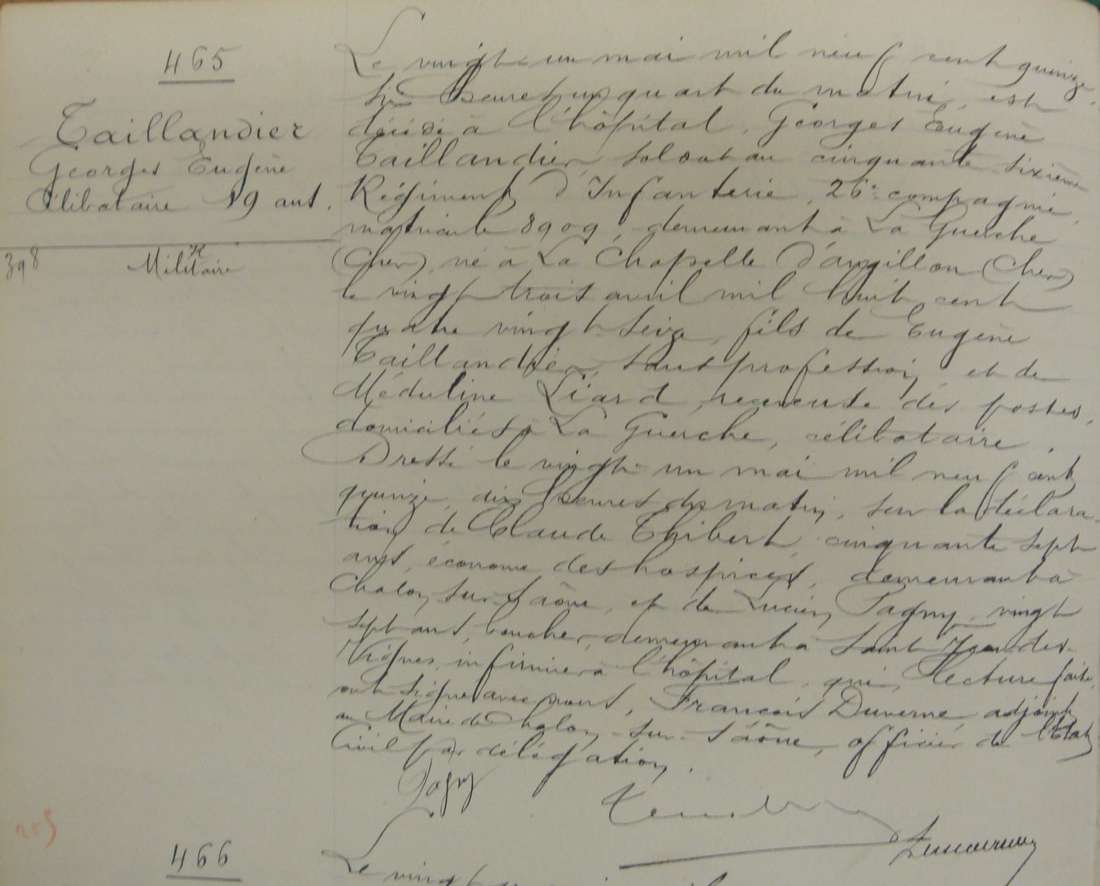 465
Taillandier
Georges Eugène
Célibataire 19 ans.
398
Militaire
Le vingt un mai mil neuf cent quinze,
six heures un quart du matin, est
décédé à l'hôpital, Georges Eugène
Taillandier, soldat au cinquante sixième
Régiment d'Infanterie, 26e compagnie,
matricule 8909, demeurant à La Guerche
(Cher), né à La Chapelle d'angillon (Cher)
le vingt trois avril mil huit cent
quatre vingt seize, fils de Eugène
Taillandier, sans profession, et de
Liard, receveuse des postes,
domiciliés à La Guerche, célibataire.
Dressé le vingt un mai mil neuf cent
quinze, dix heures du matin, sur la déclara-
tion de Claude Thibert, cinquante sept
ans, econome des hospices, demeurant à
Chalon sur Saône, et de Lucien Pagny, vingt
sept ans, boucher, demeurant à Saint Jean des
Vignes, infirmier à l'hôpital, qui, lecture faite,
ont signé avec nous, François Duverne adjoint
au Maire de Chalon-sur-Saône, officier de l'Etat
Civil par délégation.
Pagny
205
466
Le vingt